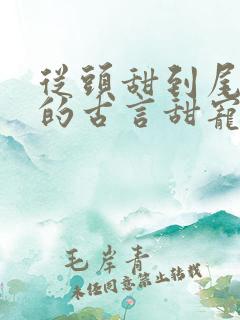 從頭甜到尾
的古言甜寵
毛岸青
未經同意禁止轉載